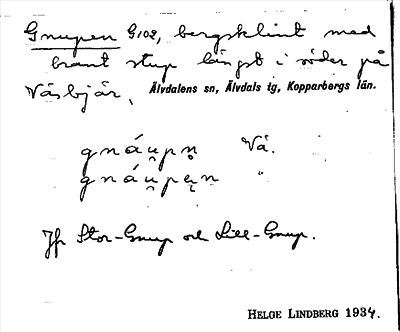 Gnupen G108, bergsklint med
brant stup längst i söder på
Våsbjär, Älvdalens sn, Älvdals tg, Kopparbergs län.
gnáu̯pn̥ Vå.
gnáu̯pęn "
Jfr Stor-Gnup och Lill-Gnup.
HELGE LINDBERG 1934.